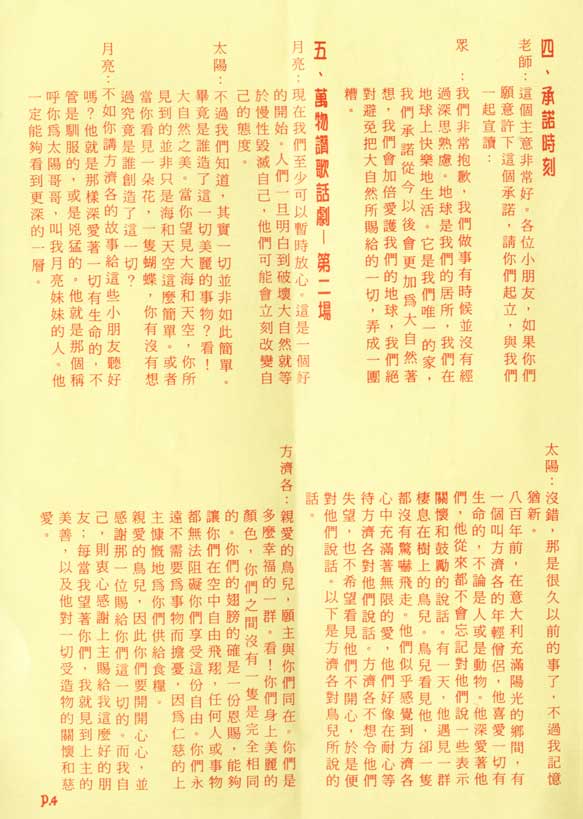 四、承諾時刻
老師：這個主意非常好。各位小朋友，如果你們
願意許下這個承諾，請你們起立，與我們
一起宣讀：
眾　：我們非常抱歉，我們做事有時候並沒有經
過深思熟慮。地球是我們的居所，我們在
地球上快樂地生活。它是我們唯一的家，
我們承諾從今以後會更加為大自然著
想，我們會加倍愛護我們的地球，我們絕
對避免把大自然所賜給的一切，弄成一團
糟。
五、萬物讚歌話劇—第二場
月亮：現在我們至少可以暫時放心。這是一個好
的開始。人們一旦明白到破壞大自然就等
於慢性毀滅自己，他們可能會立刻改變自
己的態度。
太陽：不過我們知道，其實一切並非如此簡單。
畢竟是誰造了這一切美麗的事物？看！
大自然之美。當你望見大海和天空，你所
見到的並非只是海和天空這麼簡單。或者
當你看見一朵花，一隻蝴蝶，你有沒有想
過究竟是誰創造了這一切？
月亮：不如你講方濟各的故事給這些小朋友聽好
嗎？他就是那樣深愛著一切有生命的，不
管是馴服的，或是兇猛的。他就是那個稱
呼你為太陽哥哥，叫我月亮妹妹的人。他
一定能夠看到更深的一層。
太陽：沒錯，那是很久以前的事了，不過我記憶
猶新。
八百年前，在意大利充滿陽光的鄉間，有
一個叫方濟各的年輕僧侶，他喜愛一切有
生命的，不論是人或是動物。他深愛著他
們，他從來都不會忘記對他們說一些表示
關懷和鼓勵的說話。有一天，他遇見一群
棲息在樹上的鳥兒。鳥兒看見他，卻一隻
都沒有驚嚇飛走。他們似乎感覺到方濟各
心中充滿著無限的愛，他們好像在耐心等
待方濟各對他們說話。方濟各不想令他們
失望，也不希望看見他們不開心，於是便
對他們說話。以下是方濟各對鳥兒所說的
話。
方濟各：親愛的鳥兒，願主與你們同在。你們是
多麼幸福的一群。看！你們身上美麗的
顏色，你們之間沒有一隻是完全相同
的。你們的翅膀的確是一份恩賜，能夠
讓你們在空中自由飛翔，任何人或事物
都無法阻礙你們享受這份自由。你們永
遠不需要為事物而擔憂，因為仁慈的上
主慷慨地為你們供給食糧。
親愛的鳥兒，因此你們要開開心心，並
感謝那一位賜給你們這一切的。而我自
己，則衷心感謝上主賜給我這麼好的朋
友；每當我望著你們，我就見到上主的
美善，以及他對一切受造物的關懷和慈
愛。
P.4